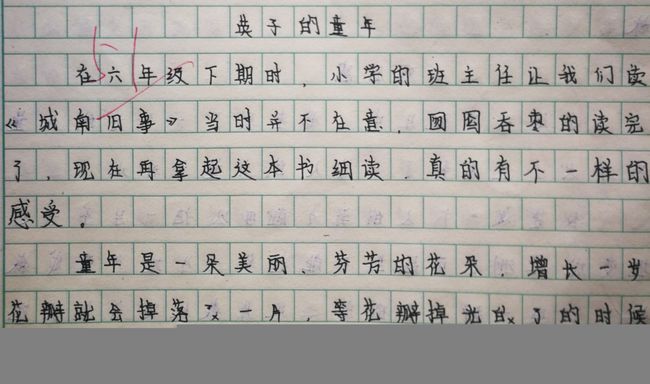 英子的童年
在六年级下期时，小学的班主任让我们读
《城南旧事》当时并不在意，囫囵吞枣的读完
了，现在再拿起这本书细读，真的有不一样的
感受。
童年是一朵美丽、芬芳的花朵，增长一岁
花瓣就会掉落一片，等花瓣掉光了的时候